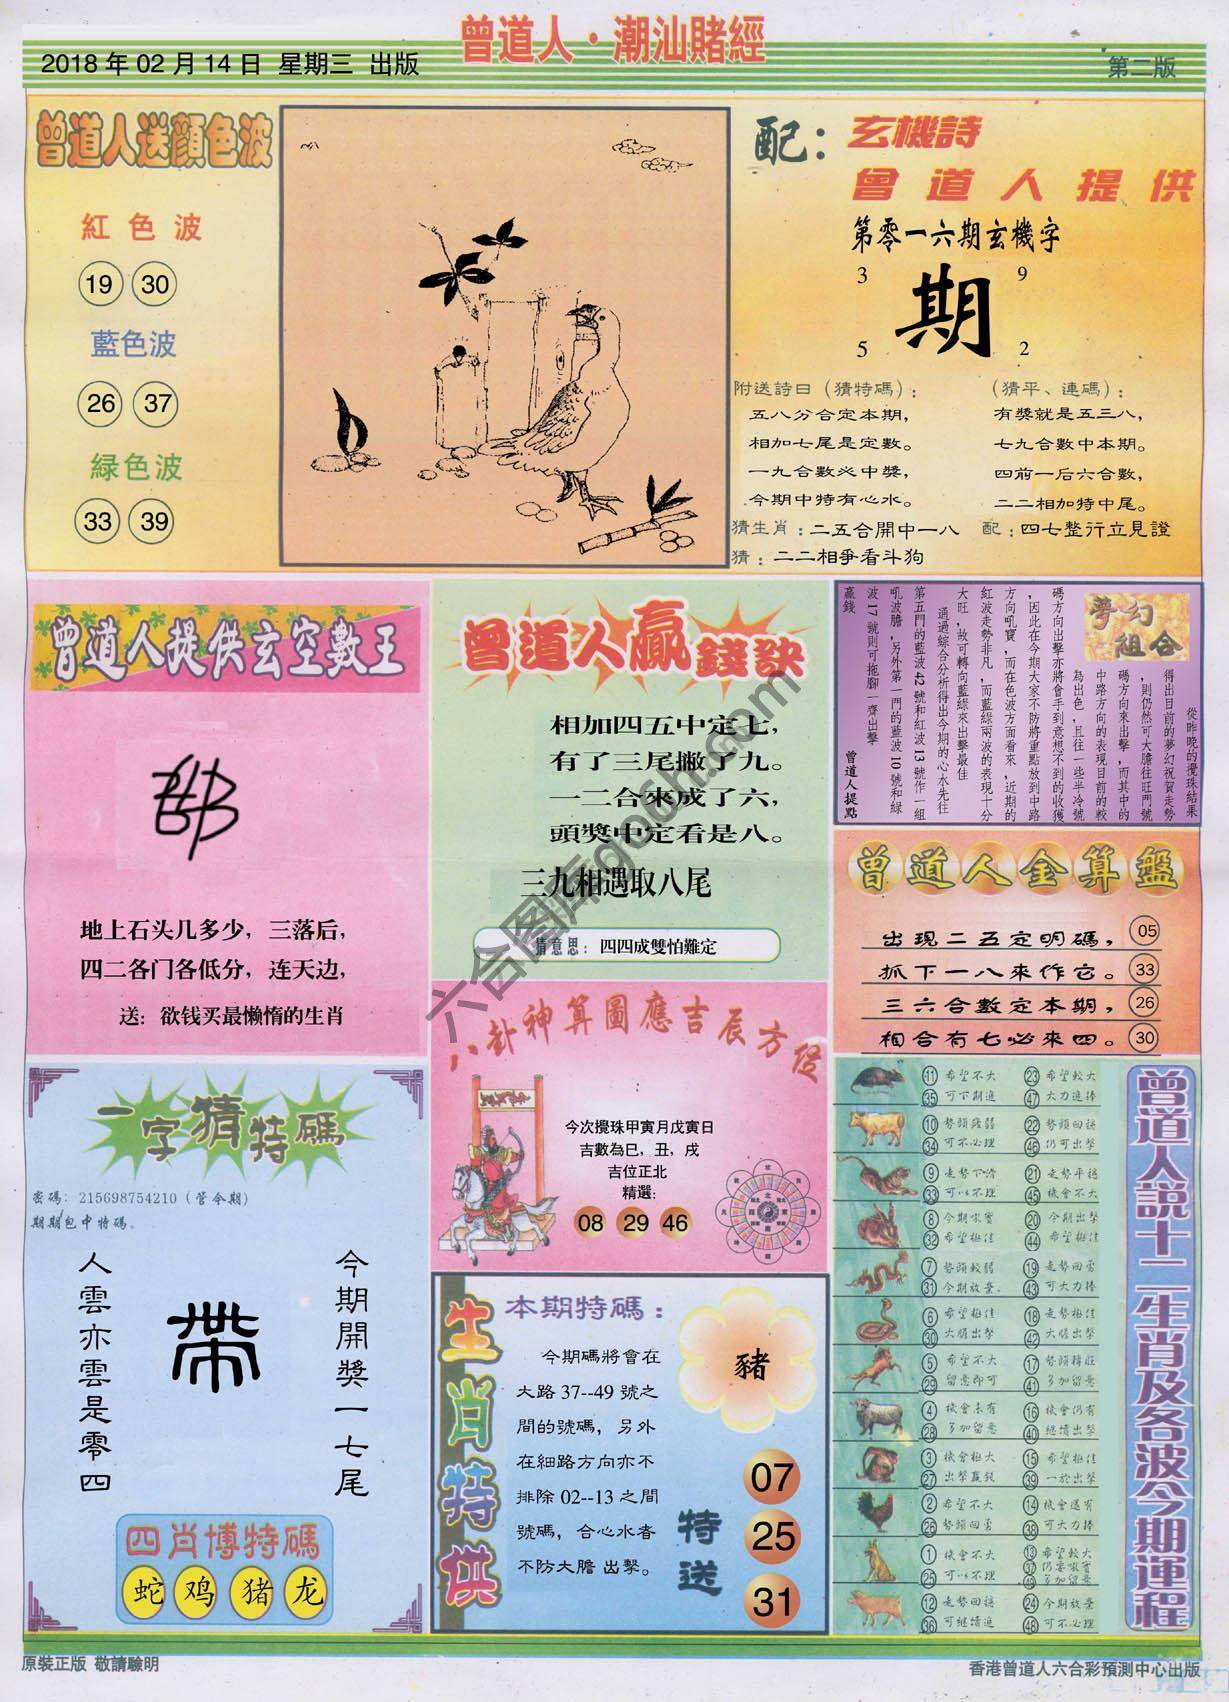 曾道人·潮汕賭經
2018年02月14日 星期三 出版
第二版
曾道人送顏色波
紅色波
19 30
藍色波
26 37
緑色波
33 39
配：玄機詩
曾道人提供
第零一六期玄機字
3 9
期
5 2
附送詩曰（猜特碼）：
五八分合定本期，
相加七尾是定數。
一九合數必中獎，
今期中特有心水。
（猜平、連碼）：
有獎就是五三八，
七九合數中本期。
四前一后六合數，
二二相加特中尾。
猜生肖：二五合開中一八
配：四七整行立見證
猜：二二相爭看斗狗
曾道人提供玄空數王
地上石头几多少，三落后，
四二各门各低分，连天边，
送：欲钱买最懒惰的生肖
曾道人贏錢訣
相加四五中定七，
有了三尾撇了九。
一二合來成了六，
頭獎中定看是八。
三九相遇取八尾
猜意思：四四成雙怕難定
夢幻組合
從昨晚的攪珠結果
得出目前的夢幻祝賀走勢
，則仍然可大膽往旺門號
碼方向來出擊，而其中的
中路方向的表現目前的較
為出色，且往一些半冷號
碼方向出擊亦將會手到意想不到的收獲
，因此在今期大家不防將重點放到中路
方向吼寶，而在色波方面看來，近期的
紅波走勢非凡，而藍綠兩波的表現十分
大旺，故可轉向藍綠來出擊最佳
通過綜合分析得出今期的心水先往
第五門的藍波42號和紅波13號作一組
吼波膽，另外第一門的藍波10號和綠
波17號則可拖腳一齊出擊
贏錢
曾道人提點
曾道人金算盤
出現二五定明碼， 05
抓下一八來作它。 33
三六合數定本期， 26
相合有七必來四。 30
八卦神算圖應吉辰方位
今次攪珠甲寅月戊寅日
吉數為巳，丑，戌
吉位正北
精選：
08 29 46
一字猜特碼
密碼：215698754210（管今期）
期期包中特碼。
今期開獎一七尾
帶
人雲亦雲是零四
四肖博特碼
蛇 鸡 猪 龙
生肖特供
本期特碼：
今期碼將會在
大路37--49號之
間的號碼，另外
在細路方向亦不
排除02--13之間
號碼，合心水者
不防大膽出擊。
豬
特送
07
25
31
曾道人説十二生肖及各波今期運程
11 希望不大 23 希望較大
35 可下期追 47 大力追捧
10 勢頭疲弱 22 勢頭回穩
34 可不必理 46 仍可出擊
9 走勢下滑 21 走勢平穩
33 可以不理 45 機會不大
8 今期吼實 20 今期出擊
32 希望極佳 44 希望極佳
7 勢頭較弱 19 走勢回勇
31 今期放棄 43 可大力捧
6 希望極佳 18 走勢極佳
30 大膽出擊 42 大膽出擊
5 希望不大 17 勢頭轉旺
29 留意即可 41 多加留意
4 機會未有 16 機會仍有
28 多加留意 40 繼續出擊
3 機會極大 15 希望極佳
27 出擊贏錢 39 一於出擊
2 希望不大 14 機會還有
26 勢頭回勇 38 可大力捧
1 機會不大 13 希望較大
25 可以不理 37 仍要吼實
49 多加留意
12 走勢回穩 24 今期放棄
36 可繼續追 48 可不必理
原裝正版 敬請驗明
香港曾道人六合彩預測中心出版
六合图库gfo6h.com